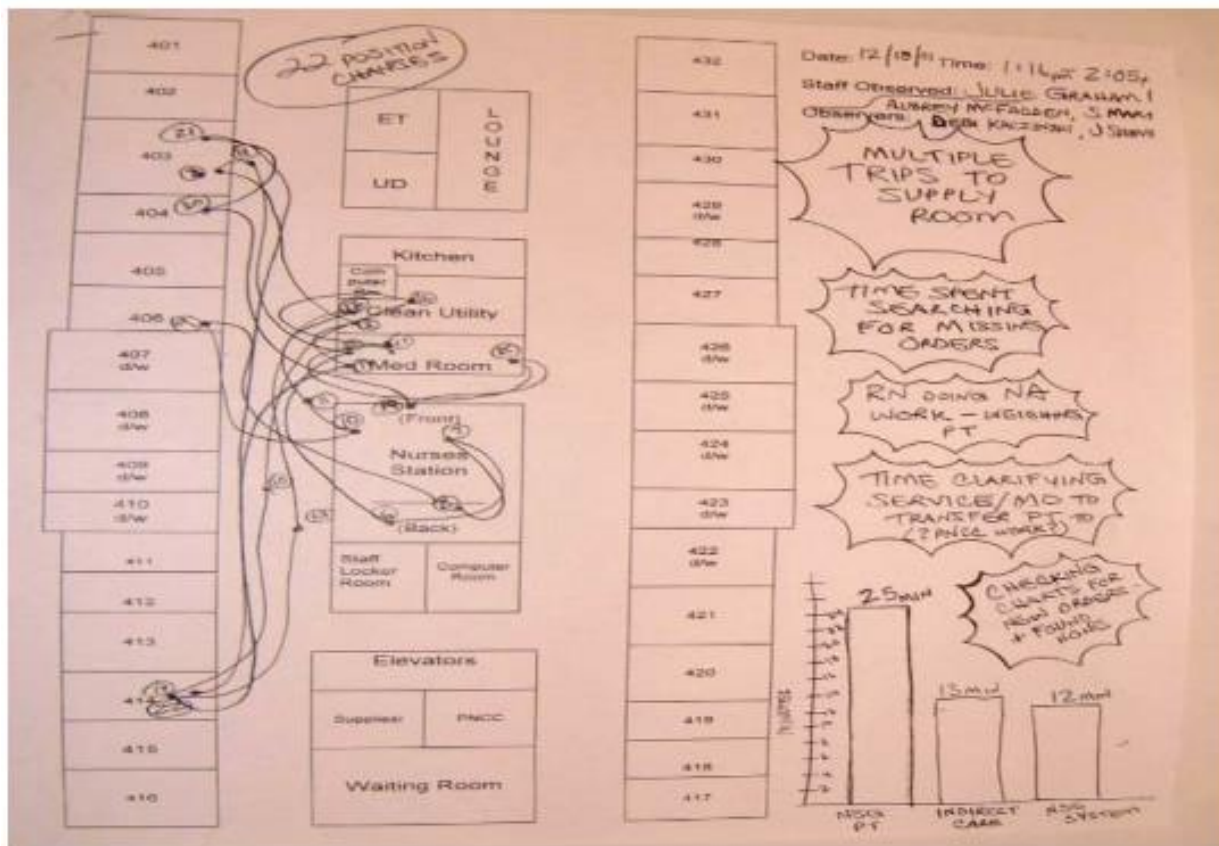 401
402
403
404
405
406
407
d/w
408
d/w
409
d/w
410
d/w
411
412
413
414
415
416
22 POSITION
CHANGES
ET
UD
LOUNGE
Kitchen
Com
puter
Clean Utility
Med Room
(Front)
Nurses
Station
(Back)
Staff
Locker
Room
Computer
Room
Elevators
Supplies/
PNCC
Waiting Room
432
431
430
429
d/w
428
427
426
d/w
425
d/w
424
d/w
423
d/w
422
d/w
421
420
419
418
417
Date: Time: 2:05
Staff Observed: JULIE GRAHAM
AUBREY MCFADDEN,
Observers:
MULTIPLE
TRIPS TO
SUPPLY
ROOM
TIME SPENT
SEARCHING
FOR MISSING
ORDERS
RN DOING NA
WORK - WEIGHING
PT
TIME CLARIFYING
SERVICE/MD TO
TRANSFER PT TO
(? PNCC WORK?)
CHECKING
CHARTS FOR
NEW ORDERS -
+ FOUND
NONE
25 MIN
13 MIN
12 MIN
NSG
PT
INDIRECT
CARE
NSG
SYSTEM